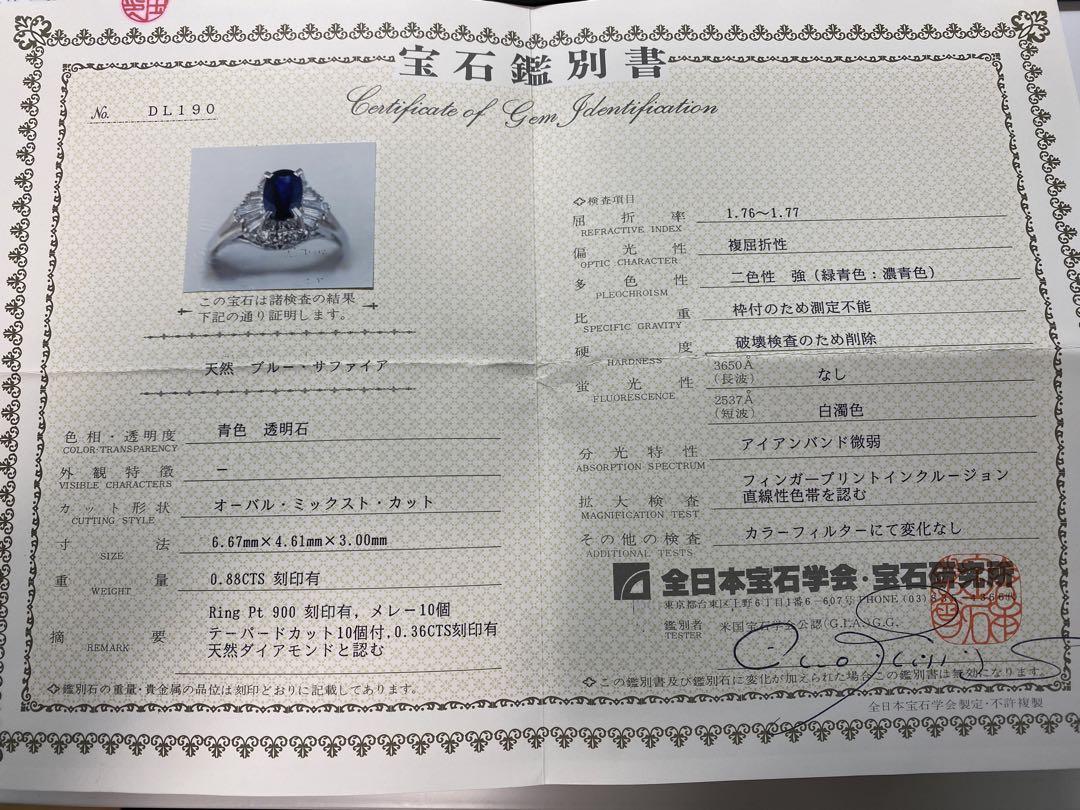 宝石鑑別書
Certificate of Gem Identification
No. DL190
この宝石は諸検査の結果
下記の通り証明します。
天然 ブルー・サファイア
色相・透明度 青色 透明石
COLOR·TRANSPARENCY
外観特徴 ー
VISIBLE CHARACTERS
カット形状 オーバル・ミックスト・カット
CUTTING STYLE
寸法 6.67mm×4.61mm×3.00mm
SIZE
重量 0.88CTS 刻印有
WEIGHT
Ring Pt 900 刻印有, メレー10個
摘要 テーパードカット10個付, 0.36CTS刻印有
REMARK
天然ダイアモンドと認む
◇鑑別石の重量・貴金属の品位は刻印どおりに記載してあります。
◇検査項目
屈折率 1.76〜1.77
REFRACTIVE INDEX
偏光性 複屈折性
OPTIC CHARACTER
多色性 二色性 強 (緑青色：濃青色)
PLEOCHROISM
比重 枠付のため測定不能
SPECIFIC GRAVITY
硬度 破壊検査のため削除
HARDNESS
蛍光性 3650Å (長波) なし
FLUORESCENCE
2537Å (短波) 白濁色
分光特性 アイアンバンド微弱
ABSORPTION SPECTRUM
拡大検査 フィンガープリントインクルージョン
直線性色帯を認む
MAGNIFICATION TEST
その他の検査 カラーフィルターにて変化なし
ADDITIONAL TESTS
全日本宝石学会・宝石研究所
東京都台東区上野6丁目1番6-607号 PHONE (03)
鑑別者 米国宝石学会公認(G.I.A.)G.G.
TESTER
◇この鑑別書及び鑑別石に変化が加えられた場合この鑑別書は無効になります。
全日本宝石学会製定・不許複製